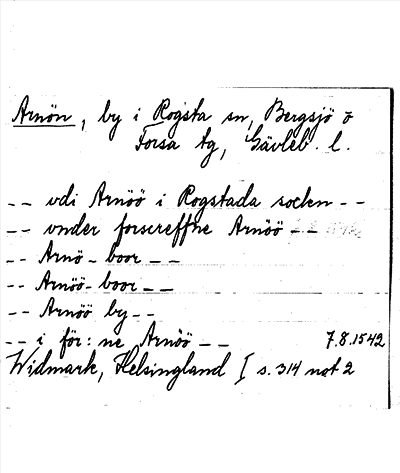 Arnön, by i Rogsta sn, Bergsjö o
Forsa tg, Gävleb. l.
-- vdi Arnöö i Rogstada socken --
-- vnder forscreffne Arnöö --
-- Arnö-boor --
-- Arnöö-boor --
-- Arnöö by --
-- i för:ne Arnöö -- 7.8.1542
Widmark, Helsingland I s. 314 not 2